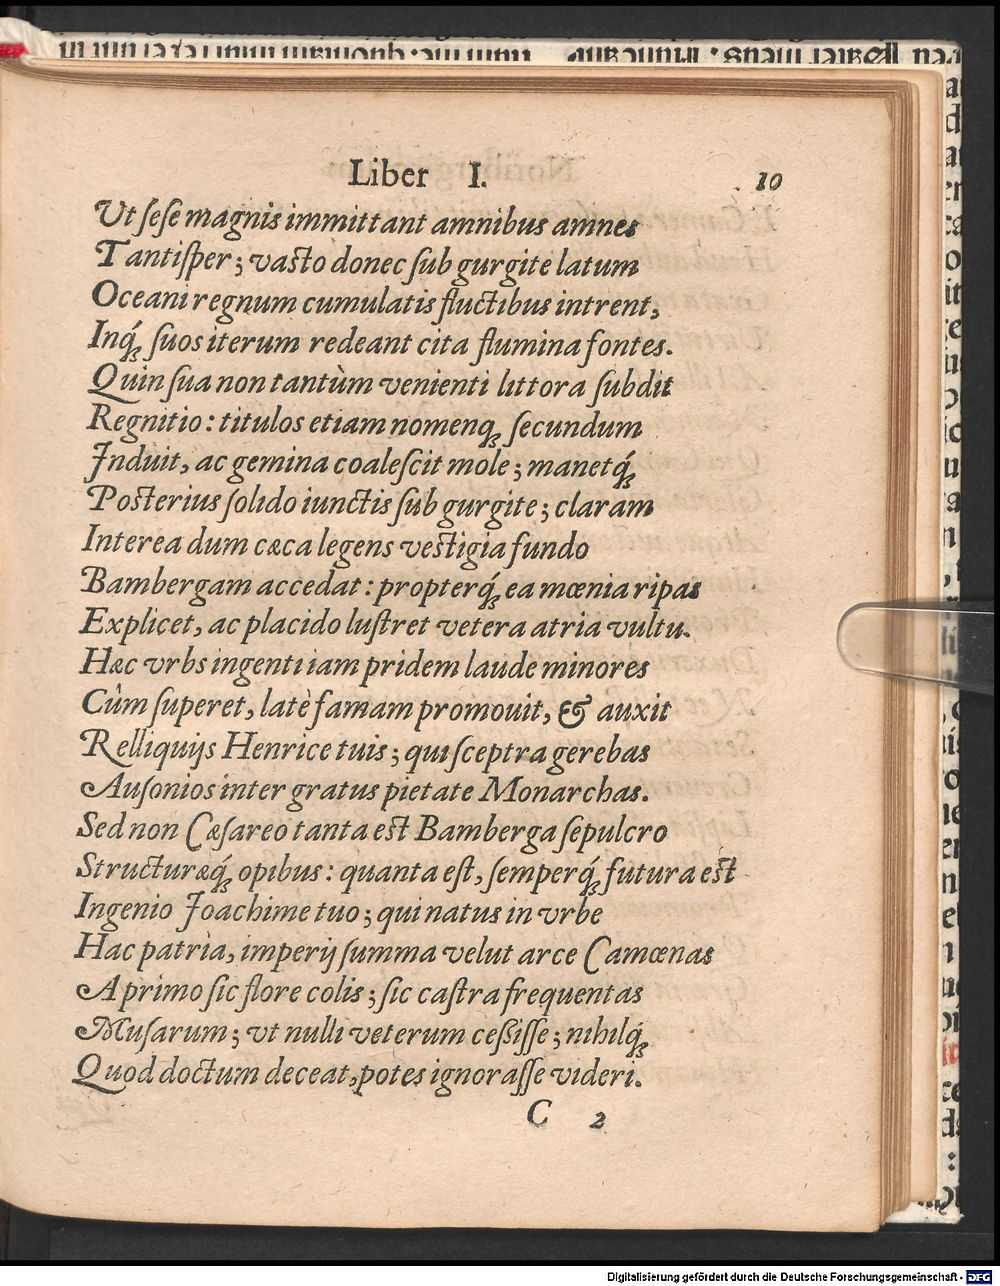 Liber I. 10
Vt sese magnis immittant amnibus amnes
Tantisper; vasto donec sub gurgite latum
Oceani regnum cumulatis fluctibus intrent,
Inq́ꝫ suos iterum redeant cita flumina fontes.
Quin sua non tantùm venienti littora subdit
Regnitio: titulos etiam nomenqꝫ secundum
Induit, ac gemina coalescit mole; manetq́ꝫ
Posterius solido iunctis sub gurgite; claram
Interea dum cæca legens vestigia fundo
Bambergam accedat: propterq́ꝫ ea mœnia ripas
Explicet, ac placido lustret vetera atria vultu.
Hæc vrbs ingenti iam pridem laude minores
Cùm superet, latè famam promouit, & auxit
Relliquijs Henrice tuis; qui sceptra gerebas
Ausonios inter gratus pietate Monarchas.
Sed non Cæsareo tanta est Bamberga sepulcro
Structuræq́ꝫ opibus: quanta est, semperq́ꝫ futura est
Ingenio Joachime tuo; qui natus in vrbe
Hac patria, imperij summa velut arce Camœnas
A primo sic flore colis; sic castra frequentas
Musarum; vt nulli veterum cessisse; nihilq́ꝫ
Quod doctum deceat, potes ignorasse videri.
C 2
Digitalisierung gefördert durch die Deutsche Forschungsgemeinschaft - DFG